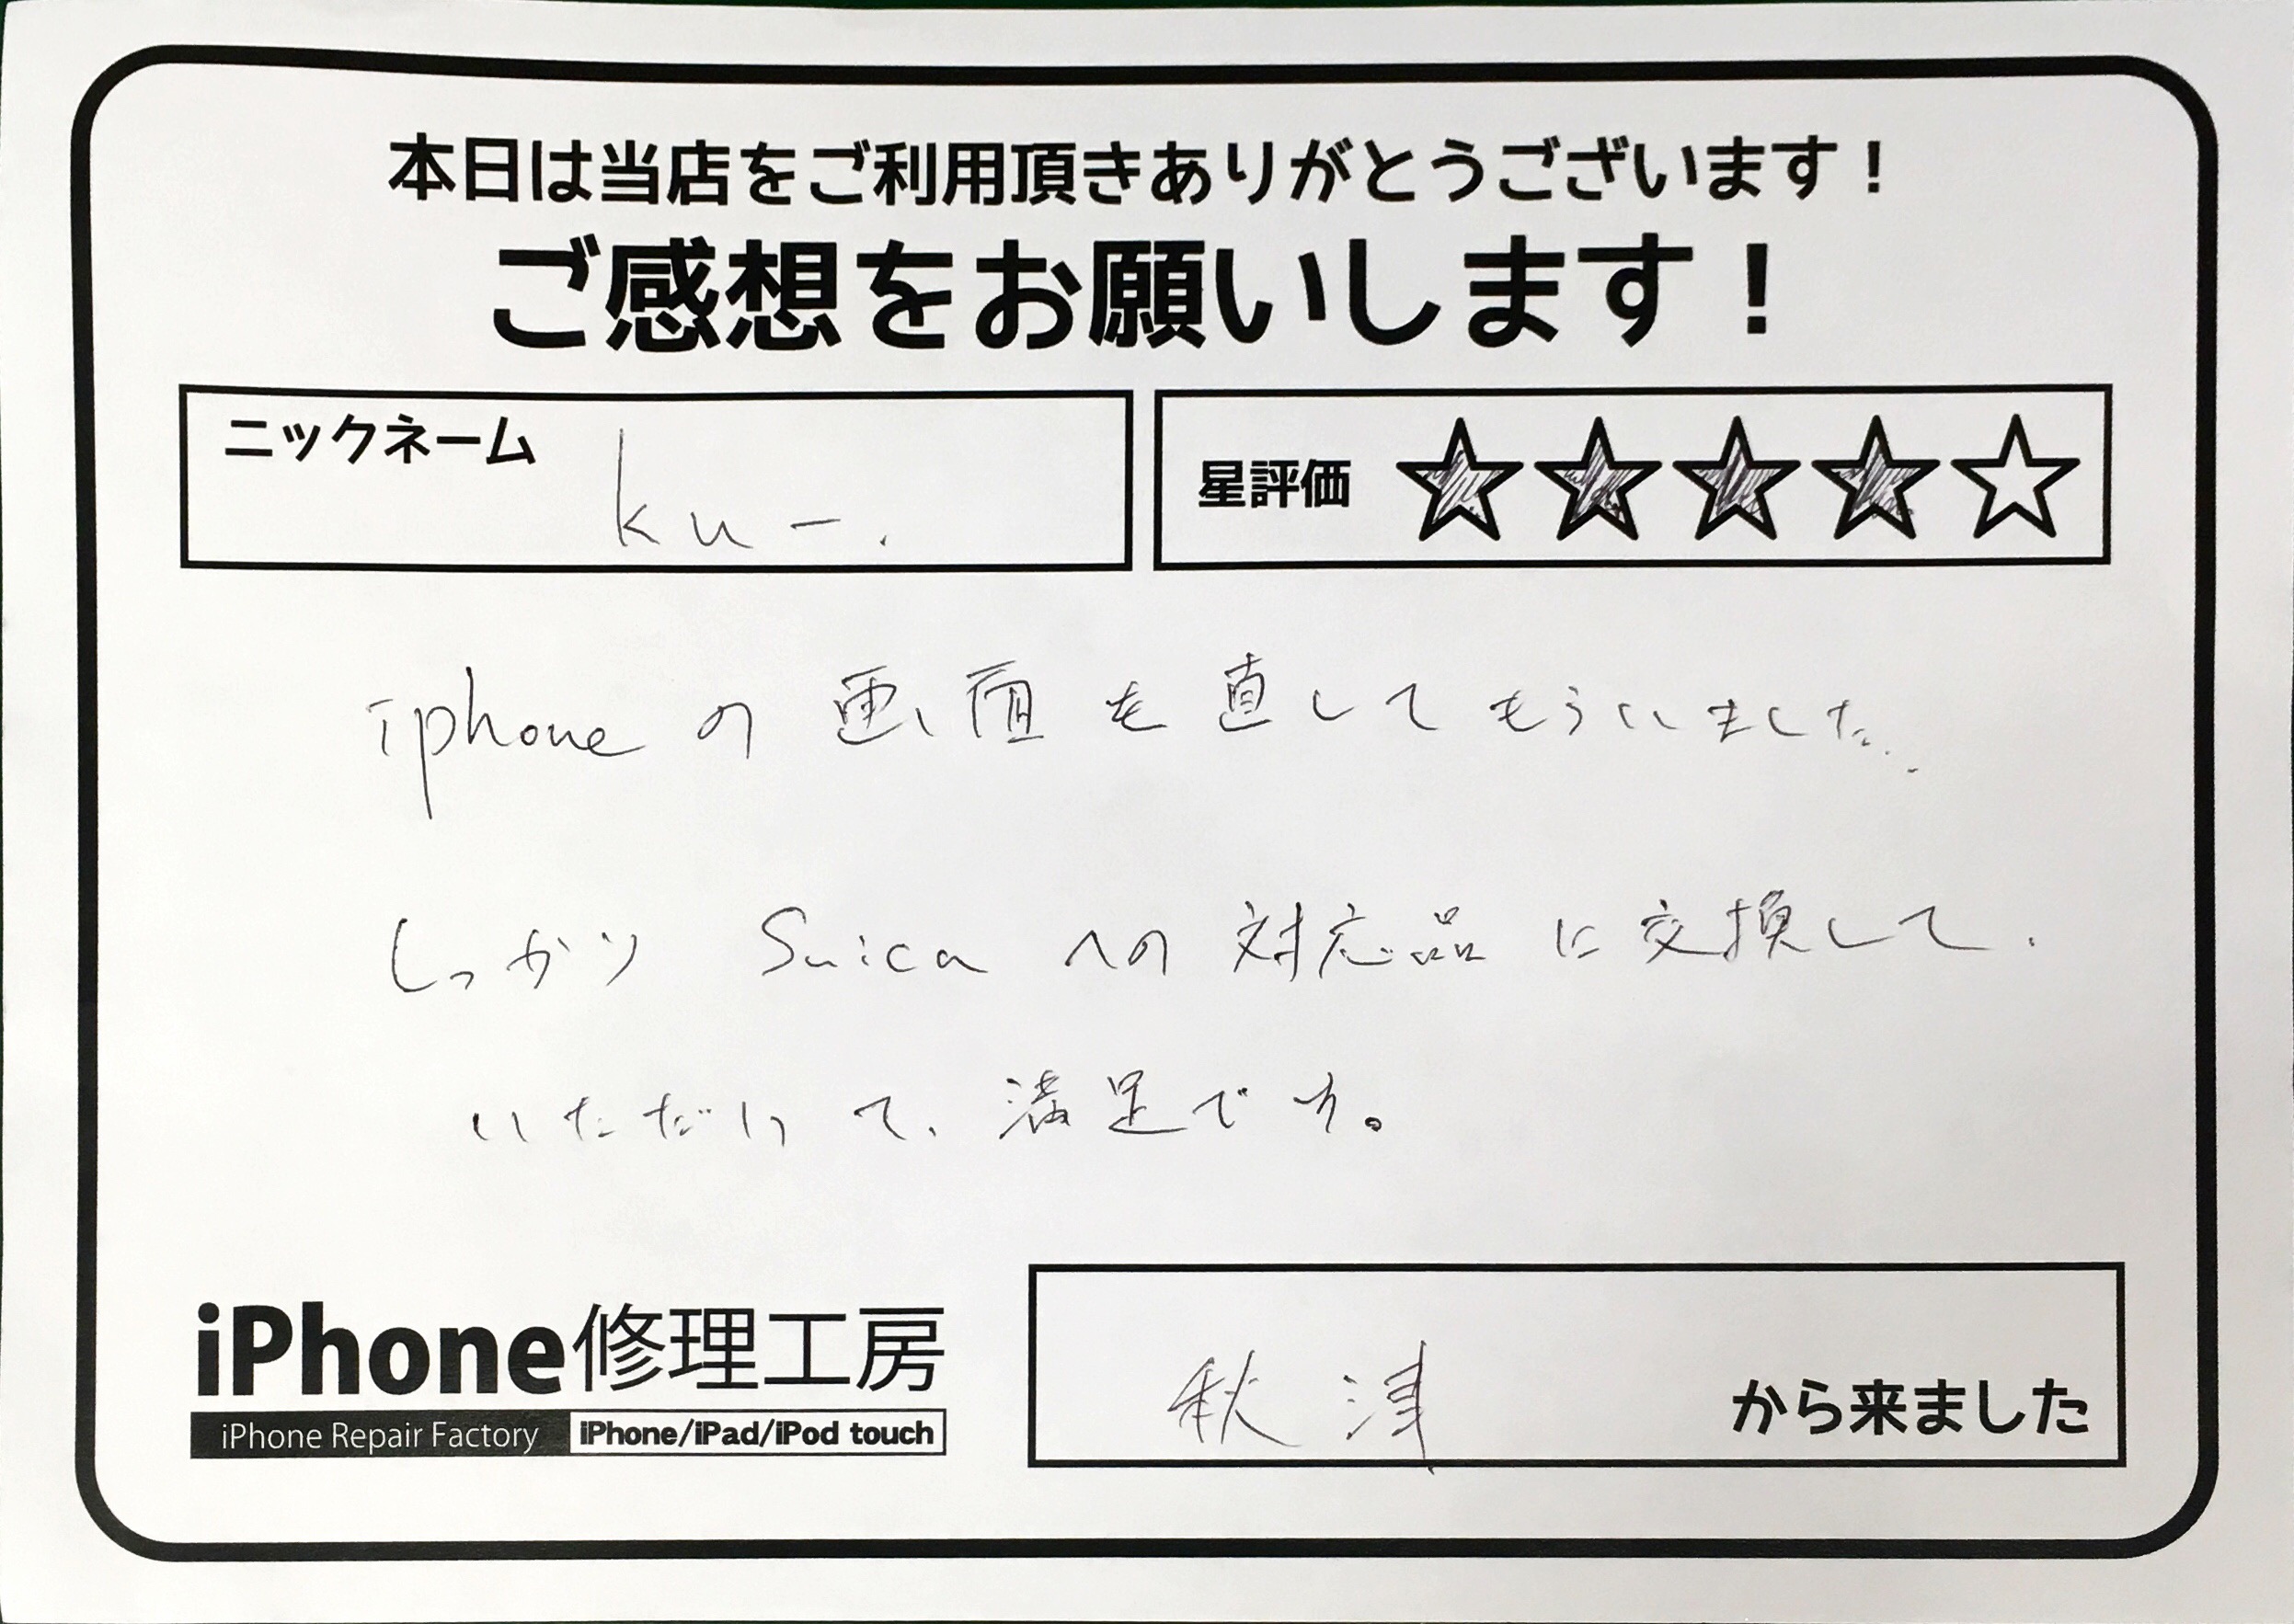 本日は当店をご利用頂きありがとうございます！
ご感想をお願いします！
ニックネーム ku－.
星評価 ★★★★☆
iphone の 画面 を 直して もらいました.
しっかり Suica への 対応品 に 交換して.
いただけて、満足です。
iPhone修理工房
iPhone Repair Factory iPhone/iPad/iPod touch
秋津 から来ました